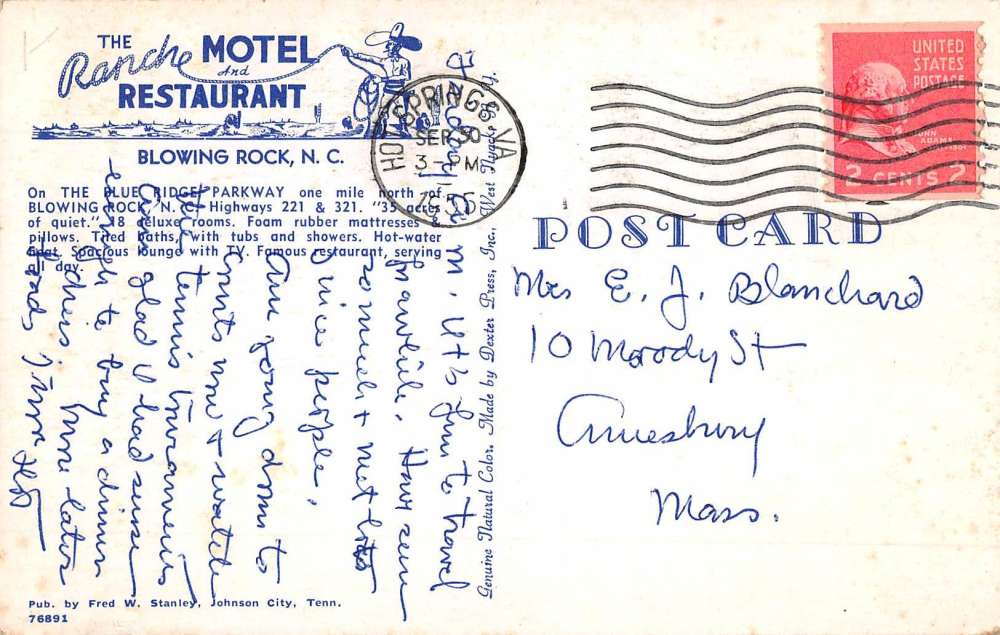 THE Ranche MOTEL
And
RESTAURANT
BLOWING ROCK, N. C.
On THE BLUE RIDGE PARKWAY one mile north of
BLOWING ROCK, N. C. Highways 221 & 321. "35 acres
of quiet." 18 deluxe rooms. Foam rubber mattresses &
pillows. Tiled baths, with tubs and showers. Hot-water
heat. Spacious lounge with TV. Famous restaurant, serving
all day.
m. It's fun to travel
for awhile. Have seen
so much & met lots
nice people.
Am going down to
courts now & watch
the tennis tournament
Am glad I had sense
enough to buy a dinner
dress more later
Loads
Pub. by Fred W. Stanley, Johnson City, Tenn.
76891
Genuine Natural Color. Made by Dexter Press, Inc., West Nyack, N. Y.
HOT SPRINGS VA
SEP 30
3 - PM
UNITED
STATES
POSTAGE
JOHN ADAMS
2 CENTS 2
POST CARD
Mrs E. J. Blanchard
10 Moody St
Amesbury
Mass.